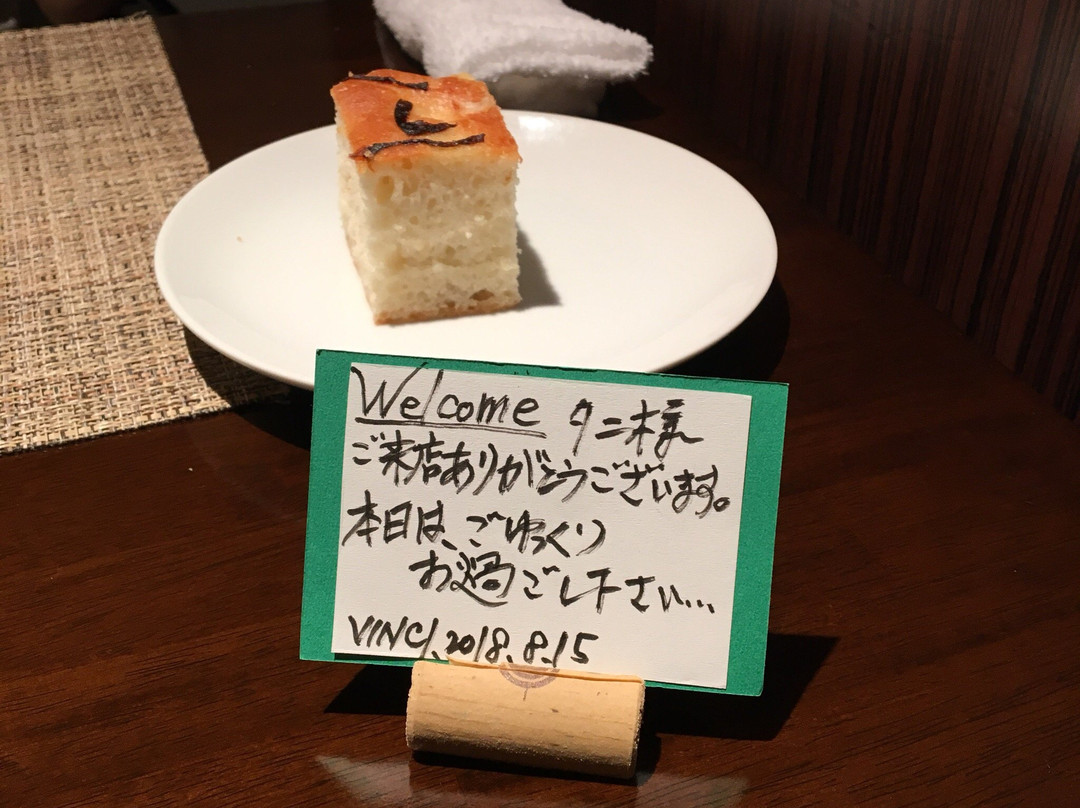 Welcome タニ様
ご来店ありがとうございます。
本日は、ごゆっくり
お過ごし下さい...
VINCI. 2018.8.15